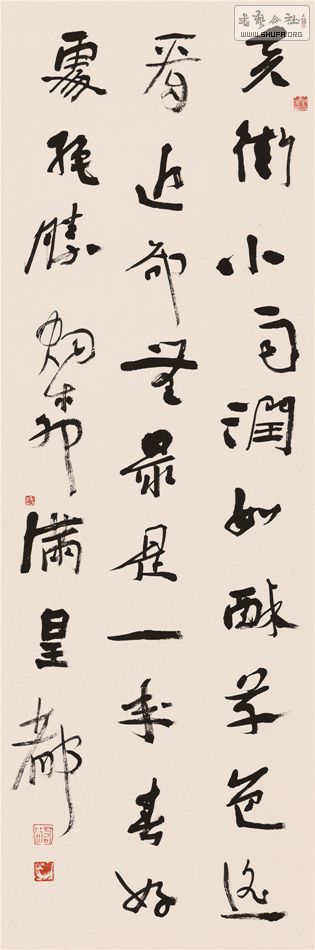 天街小雨潤如酥草色遥
看近却無最是一年春好
處絶勝烟柳滿皇都
書藝公社
WWW.SHUFA.ORG